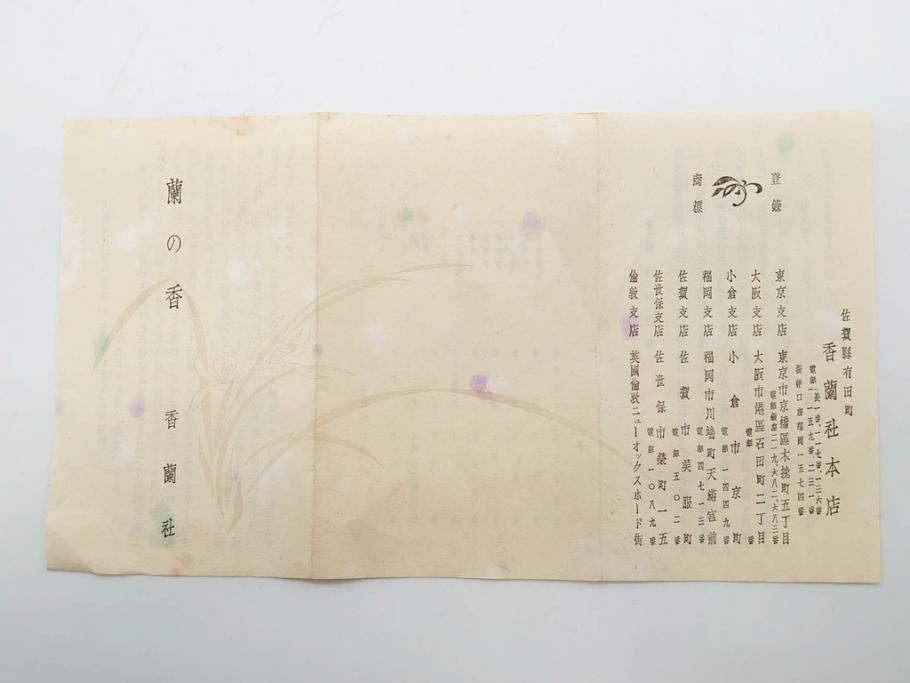 登錄
商標
佐賀縣有田町
香蘭社本店
電話(長一番、一一七番、一三六番
一五九番、二三一番
振替口座福岡一五七四番
東京支店 東京市京橋區木挽町五丁目
電話銀座二一九六八二、六八三番
大阪支店 大阪市港區石田町二丁目
小倉支店 小倉市京町
電話一四四九番
福岡支店 福岡市川端町天満宮前
電話四七一三番
佐賀支店 佐賀市吳服町
電話五〇二番
佐世保支店 佐世保市榮町一五
電話一〇八九番
倫敦支店 英國倫敦ニューオックスホード街
蘭の香
香蘭社